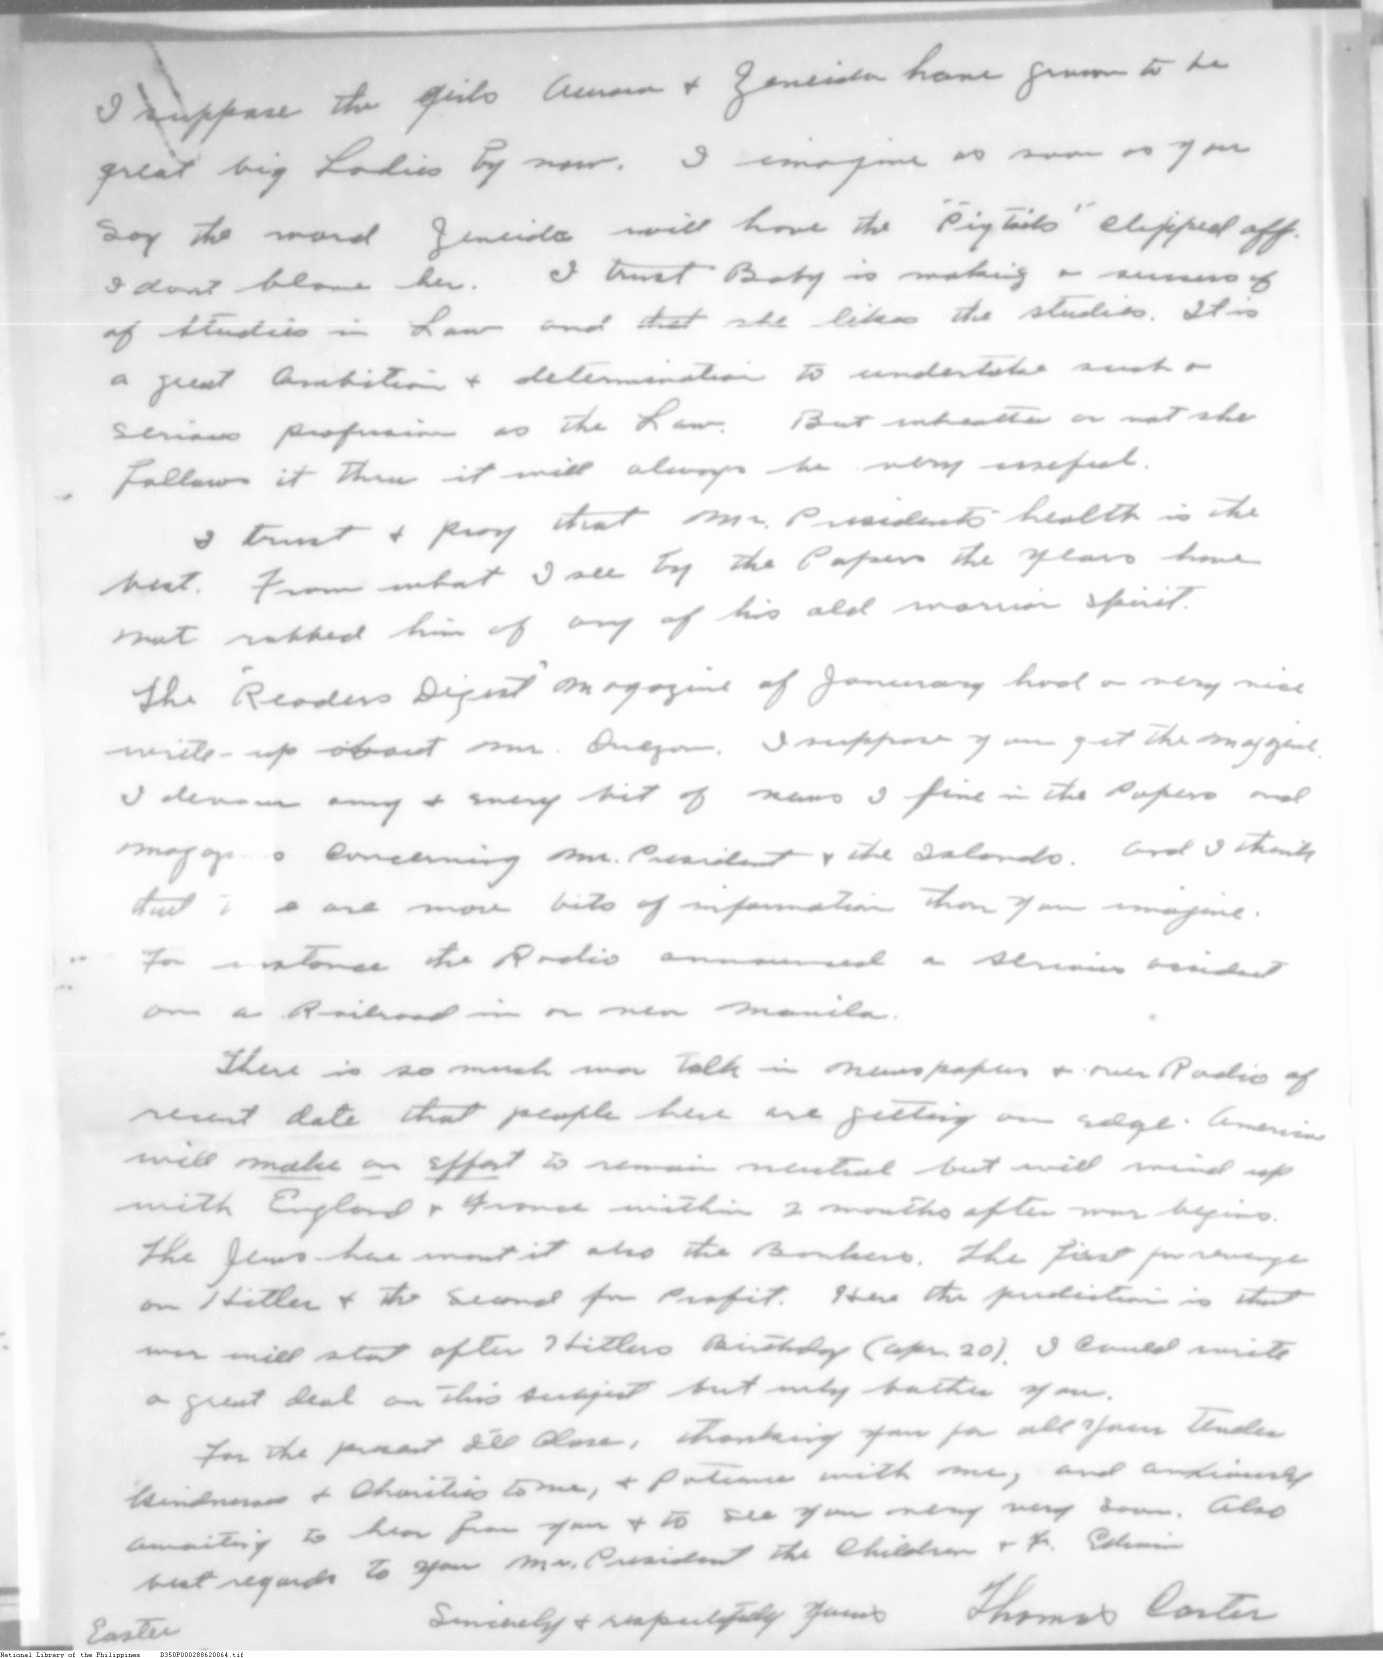 I suppose the girls Aurora & Zeneida have grown to be
great big Ladies by now. I imagine as soon as you
say the word Zeneida will have the "Pigtails" clipped off.
I dont blame her. I trust Baby is making a success of
of studies in Law and that she likes the studies. It is
a great Ambition & determination to undertake such a
serious profession as the Law. But wheather or not she
follows it thru it will always be very useful.
I trust & pray that Mr. Presidents health is the
best. From what I see by the Papers the years have
not robbed him of any of his old warrior spirit.
The "Readers Digest" Magazine of January had a very nice
write-up about Mr. Quezon. I suppose you get the magazine.
I devour any & every bit of news I fine in the Papers and
concerning Mr. President & the Islands. And I think
that are more bits of information than you imagine.
For instance the Radio announced a serious accident
on a Railroad in or near Manila.
There is so much war talk in newspapers & over Radio of
recent date that people here are getting on edge. America
will make an effort to remain neutral but will wind up
with England & France within 2 months after war begins.
The Jews here want it also the Bankers. The first for revenge
on Hitler & the second for Profit. Here the prediction is that
war will start after Hitlers Birthday (Apr. 20). I could write
a great deal on this subject but why bother you.
For the present I'll close, thanking you for all your tender
kindness & Charities to me, & Patience with me, and anxiously
awaiting to hear from you & to see you very very soon. Also
best regards to you Mr. President the Children & Fr. Edwin
Sincerely & respectfully yours Thomas Carter
Easter
National Library of the Philippines D350P000288620064.tif